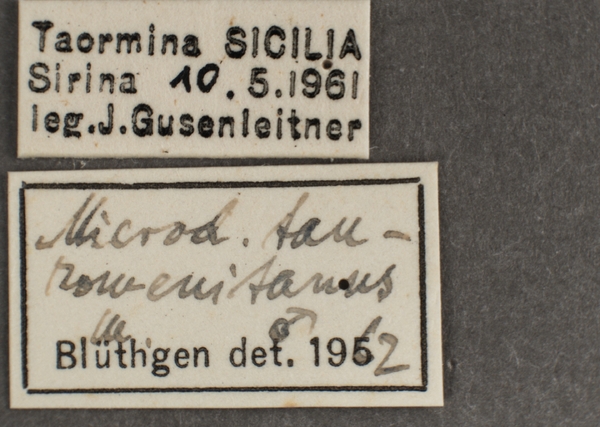 Taormina SICILIA
Sirina 10.5.1961
leg.J.Gusenleitner
Microd. tau-
romenitanus
m. ♂
Blüthgen det. 1962